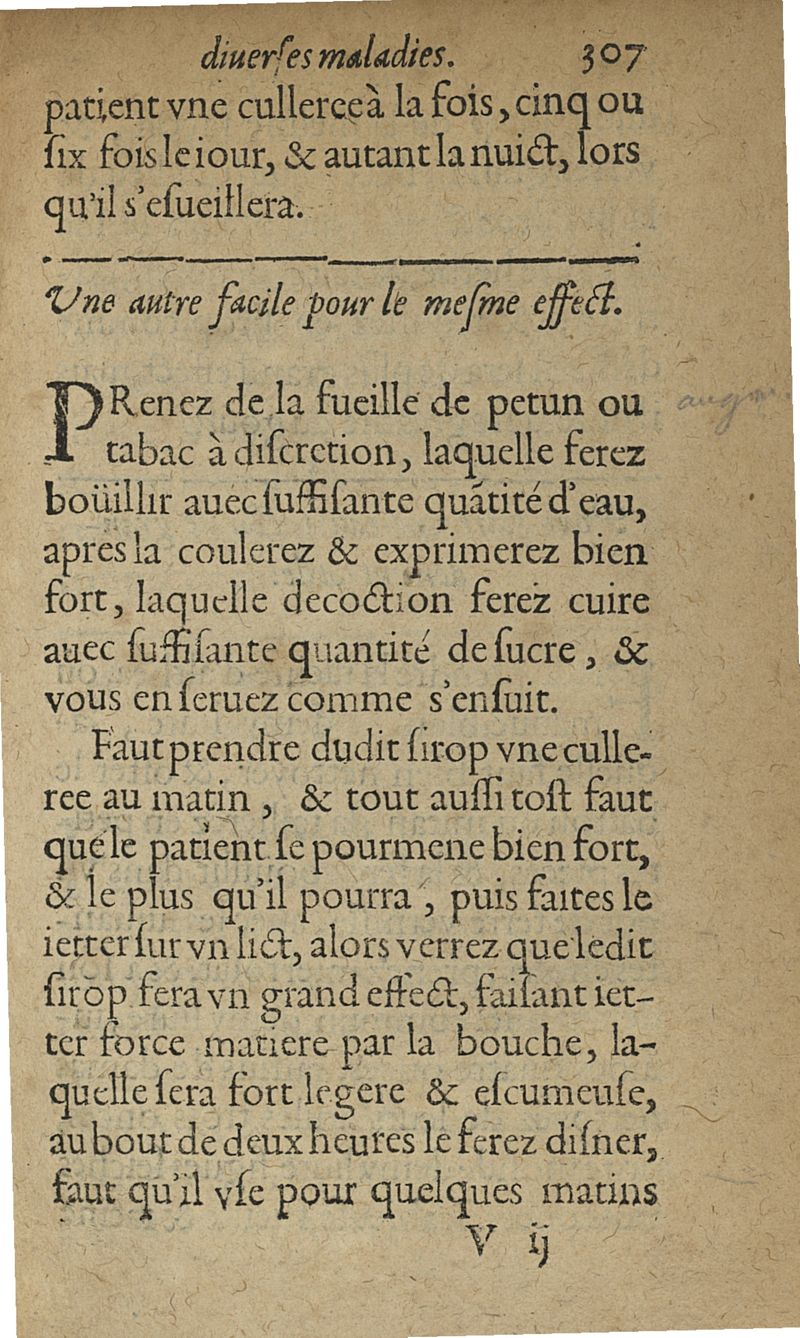 diuerſes maladies. 307
patient vne cullereeà la fois, cinq ou
ſix fois le iour, & autant la nuict, lors
qu'il s'eſueillera.
Vne autre facile pour le meſme effect.
PRenez de la fueille de petun ou
tabac à diſcretion, laquelle ferez
boüillir auec ſuffiſante quãtité d'eau,
apres la coulerez & exprimerez bien
fort, laquelle decoction ferez cuire
auec ſuffiſante quantité de ſucre, &
vous en ſeruez comme s'enſuit.
Faut prendre dudit ſirop vne culle-
ree au matin, & tout auſſi toſt faut
que le patient ſe pourmene bien fort,
& le plus qu'il pourra, puis faites le
ietter ſur vn lict, alors verrez que ledit
ſirop fera vn grand effect, faiſant iet-
ter force matiere par la bouche, la-
quelle ſera fort legere & eſcumeuſe,
au bout de deux heures le ferez diſner,
faut qu'il vſe pour quelques matins
V ij